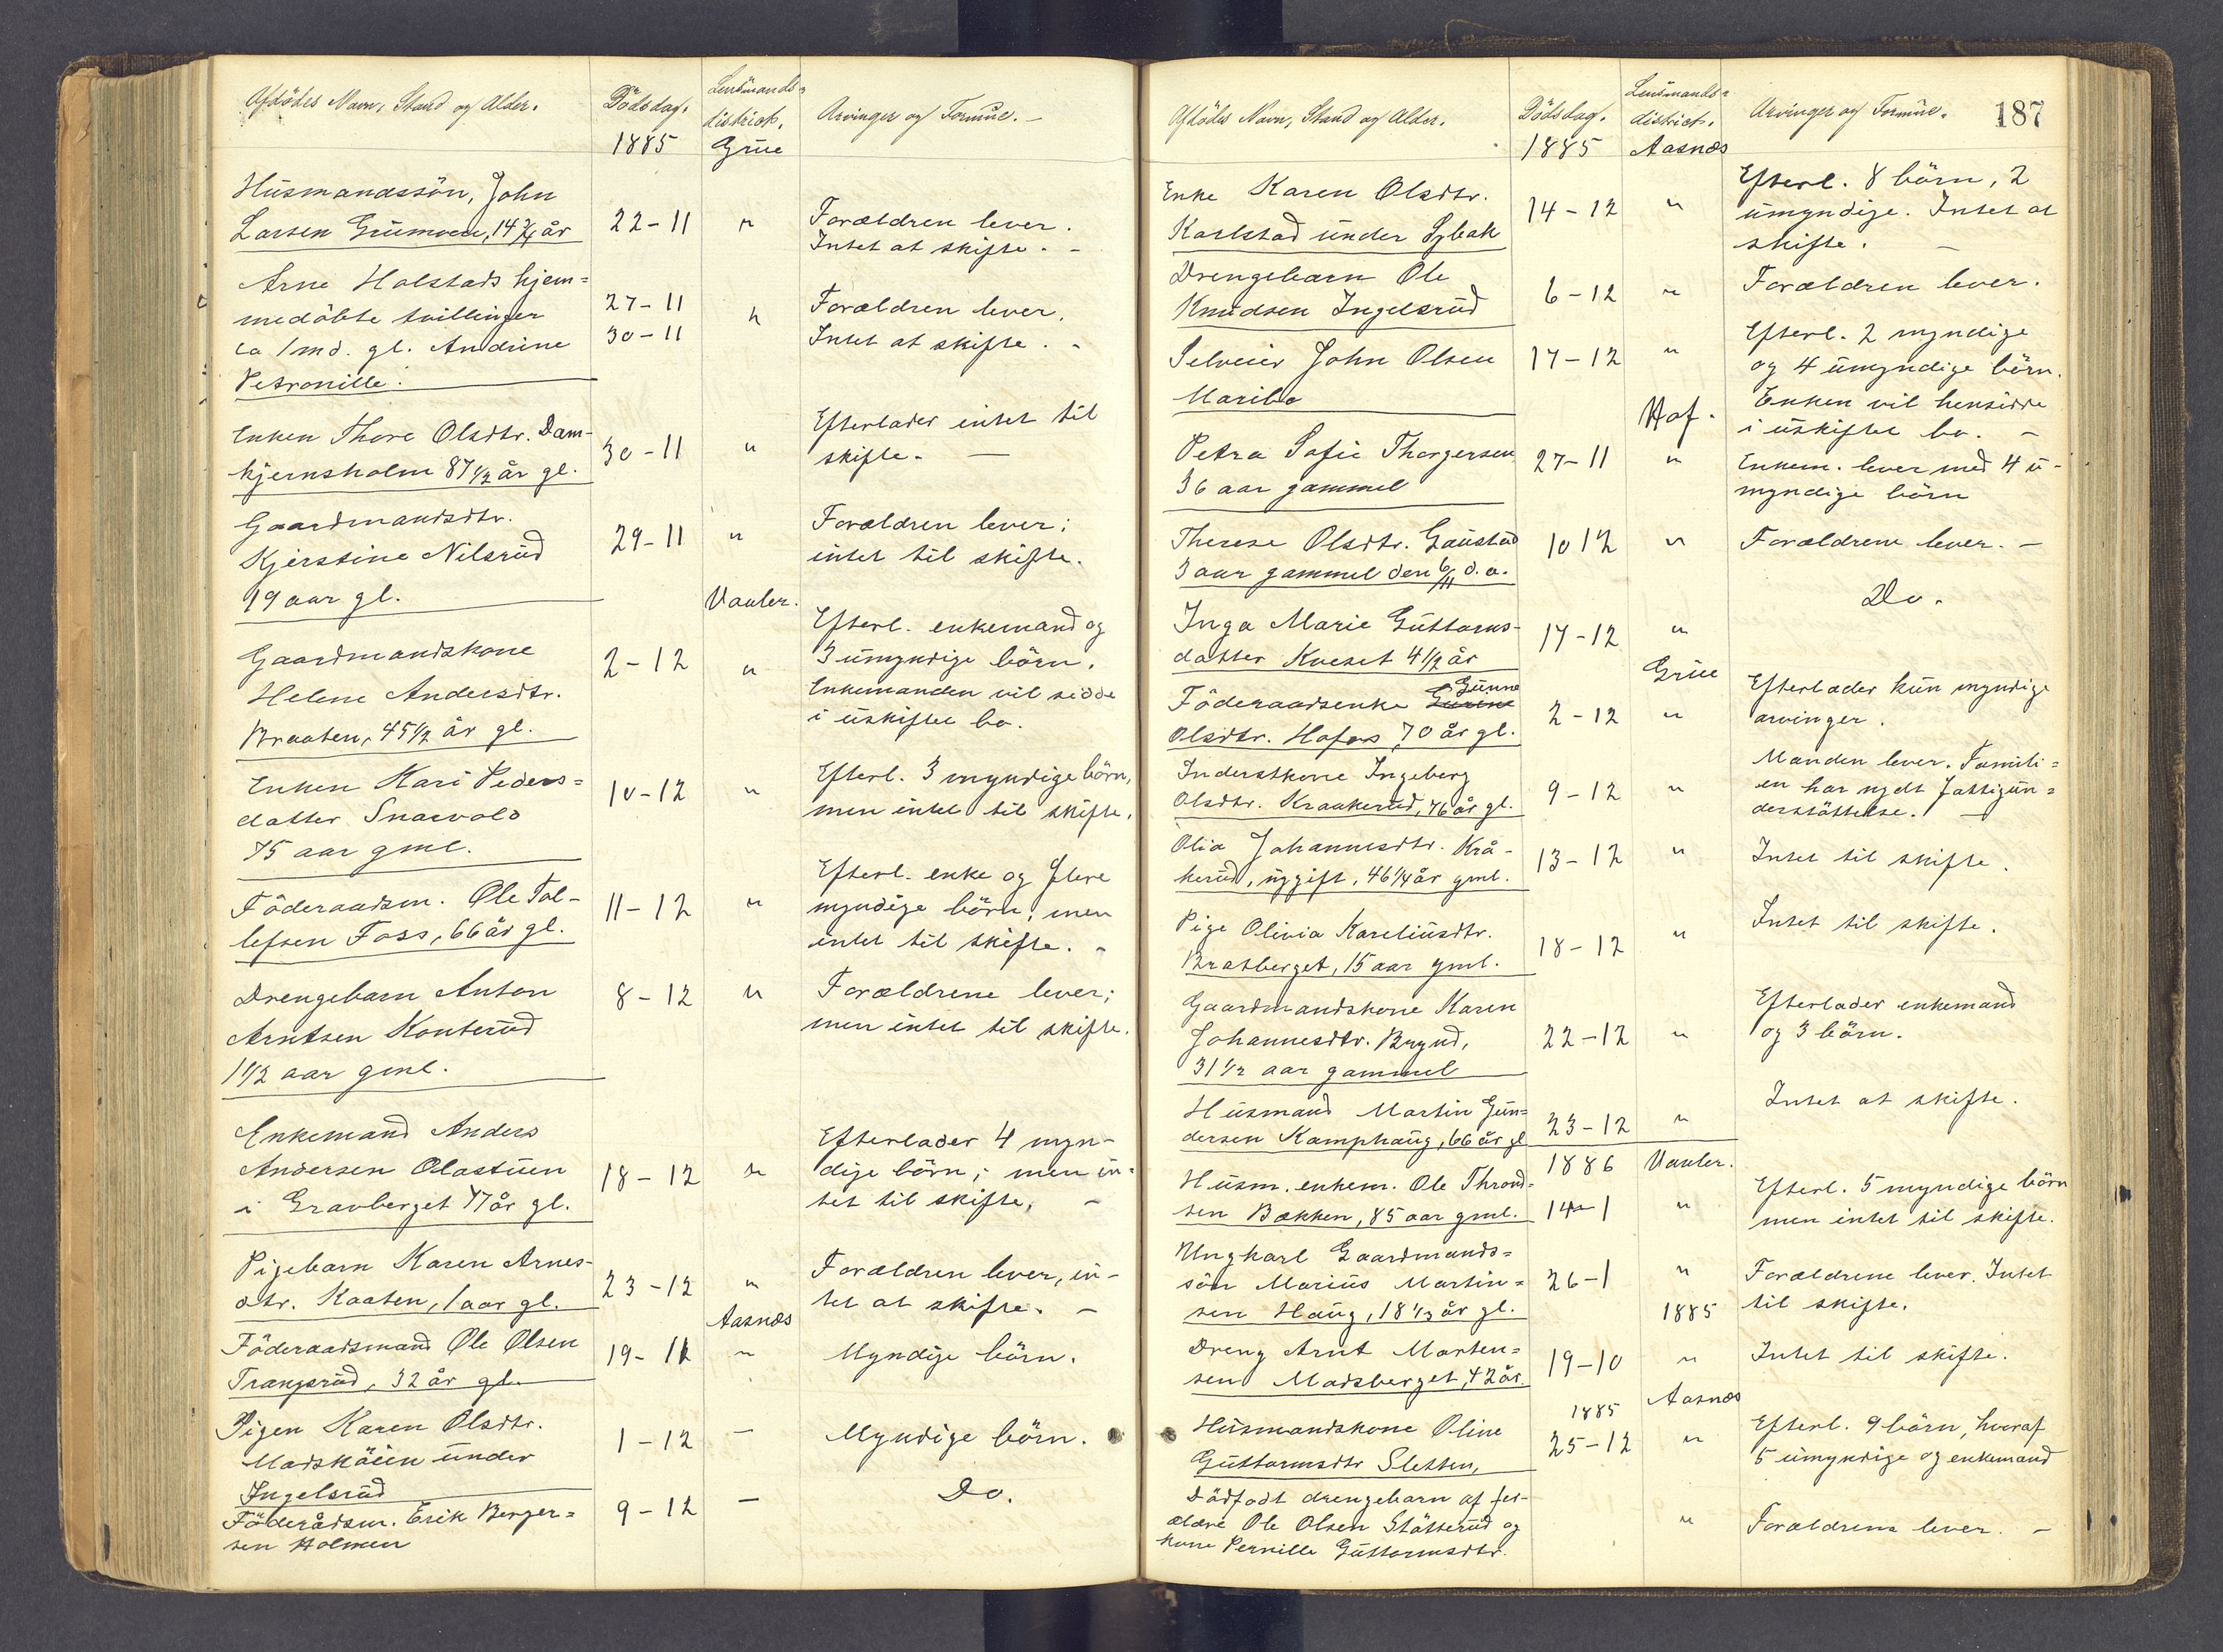 Afdödes Navn, Stand og Alder.
Dödsdag.
Lensmands-
district.
Arvinger og Formue. -
1885
Grue
Husmandssön, John
Larsen Gruemoen, 14 3/4 år
22-11
"
Forældren lever.
Intet at skifte. -
Arne Holstads hjem=
medöbte tvillinger
ca 1 md. gl. Andrine
Petronille.
27-11
30-11
"
Forældren lever.
Intet at skifte. -
Enken Thore Olsdtr. Dam-
kjernsholm 87 1/2 år gl.
30-11
"
Efterlader intet til
skifte. -
Gaardmandsdtr.
Kjerstine Nilsrud
19 aar gl.
29-11
"
Forældren lever;
intet til skifte.
Vaaler.
Gaardmandskone
Helene Andersdtr.
Braaten, 45 1/2 år gl.
2-12
"
Efterl. enkemand og
3 umyndige börn.
Enkemanden vil sidde
i uskiftet bo.
Enken Kari Peders=
datter Snarvold
75 aar gml.
10-12
"
Efterl. 3 myndige börn,
men intet til skifte.
Föderaadsm. Ole Tol-
lefsen Foss, 66 år gl.
11-12
"
Efterl. enke og flere
myndige börn; men
intet til skifte. -
Drengebarn Anton
Arntsen Konterud
1 1/2 aar gml.
8-12
"
Forældrene lever;
men intet til skifte.
Enkemand Anders
Andersen Olastuen
i Gravberget 77 år gl.
18-12
"
Efterlader 4 myn-
dige börn; men in=
tet til skifte. -
Pigebarn Karen Arnes-
dtr. Kaaten, 1 aar gl.
23-12
"
Forældren lever, in-
tet at skifte. -
Aasnæs
Föderaadsmand Ole Olsen
Trangsrud, 32 år gl.
19-11
"
Myndige börn.
Pigen Karen Olsdtr.
Madsköien under
Ingelsrud
1-12
-
Myndige börn.
Föderådsm. Erik Berger=
sen Holmen
9-12
-
Do.
187
Afdödes Navn, Stand og Alder.
Dödsdag.
Lensmands-
district.
Arvinger og Formue.
1885
Aasnæs
Enke Karen Olsdtr.
Karlstad under Sjbak
14-12
"
Efterl. 8 börn, 2
umyndige. Intet at
skifte. -
Drengebarn Ole
Knudsen Ingelsrud
6-12
"
Forældren lever.
Selveier John Olsen
Maribo
17-12
"
Efterl. 2 myndige
og 4 umyndige börn.
Enken vil hensidde
i uskiftet bo. -
Hof.
Petra Sofie Thorgersen
36 aar gammel
27-11
"
Enkem. lever med 4 u-
myndige börn
Therese Olsdtr. Gaustad
3 aar gammel den 6/11 d. a.
10 12
"
Forældrene lever. -
Inga Marie Guttorms-
datter Kveset 4 1/2 år
17-12
"
Do.
Grue
Gunne
Föderaadsenke
Olsdtr. Hofaas, 70 år gl.
2-12
"
Efterlader kun myndige
arvinger.
Inderstkone Ingeberg
Olsdtr. Kraakerud, 76 år gl.
9-12
"
Manden lever. Famili=
en har nydt fattigun=
derstöttelse. -
Olia Johannesdtr. Krå-
kerud, uggift, 46 1/4 år gml.
13-12
"
Intet til skifte.
Pige Olivia Kareliusdtr.
Bratberget, 15 aar gml.
18-12
"
Intet til skifte.
Gaardmandskone Karen
Johannesdtr. Brynd,
31 1/2 aar gammel
22-12
"
Efterlader enkemand
og 3 börn.
Husmand Martin Gun=
dersen Kamphaug, 66 år gl
23-12
"
Intet at skifte.
1886
Vaaler.
Husm. enkem. Ole Thrond=
sen Bækken, 85 aar gml.
14-1
"
Efterl. 5 myndige börn
men intet til skifte.
Ungkarl Gaardmands=
sön Marius Martin=
sen Haug, 18 1/3 år gl.
26-1
"
Forældrene lever. Intet
til skifte.
1885
Dreng Arnt Morten=
sen Madsberget, 42 år.
19-10
"
Intet til skifte.
1885
Aasnæs
Husmandskone Oline
Guttormsdtr Sletten,
25-12
"
Efterl. 9 börn, hvoraf
5 umyndige og enkemand
Dödfödt drengebarn af for-
ældre Ole Olsen Stötterud og
kone Pernille Guttormsdtr.
"
Forældrene lever. -